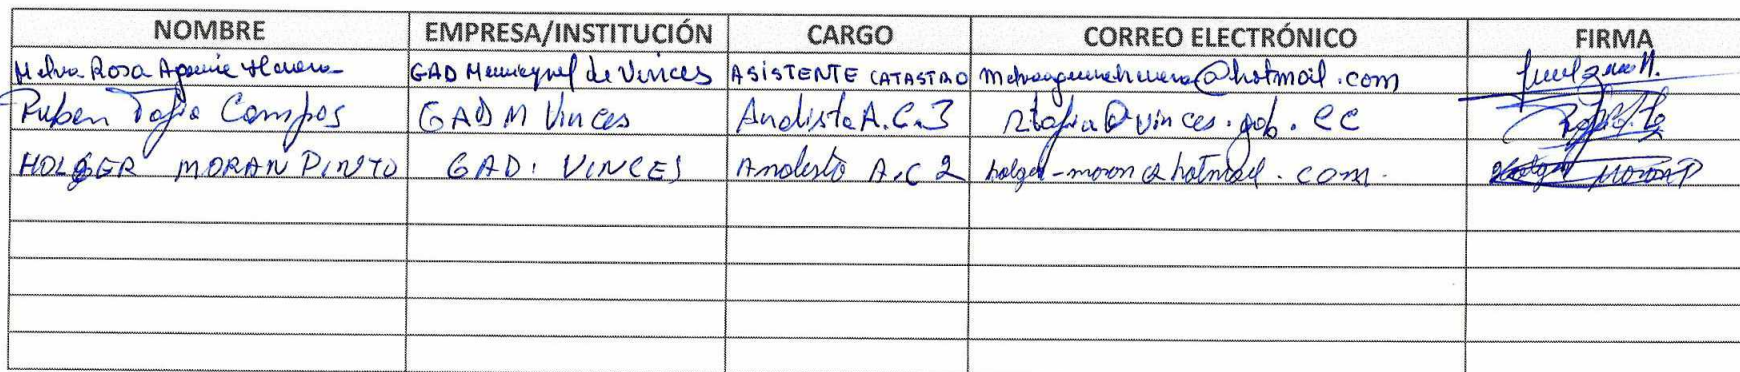 NOMBRE EMPRESA/INSTITUCIÓN CARGO CORREO ELECTRÓNICO FIRMA
Melva Rosa GAD Municipal de Vinces ASISTENTE CATASTRO @hotmail.com
Ruben Tafia Campos GAD M Vinces Analista A.C.3 rtafia@vinces.gob.ec
HOLGER MORAN PINTO GAD. VINCES Analista A.C 2 holger-moran@hotmail.com.